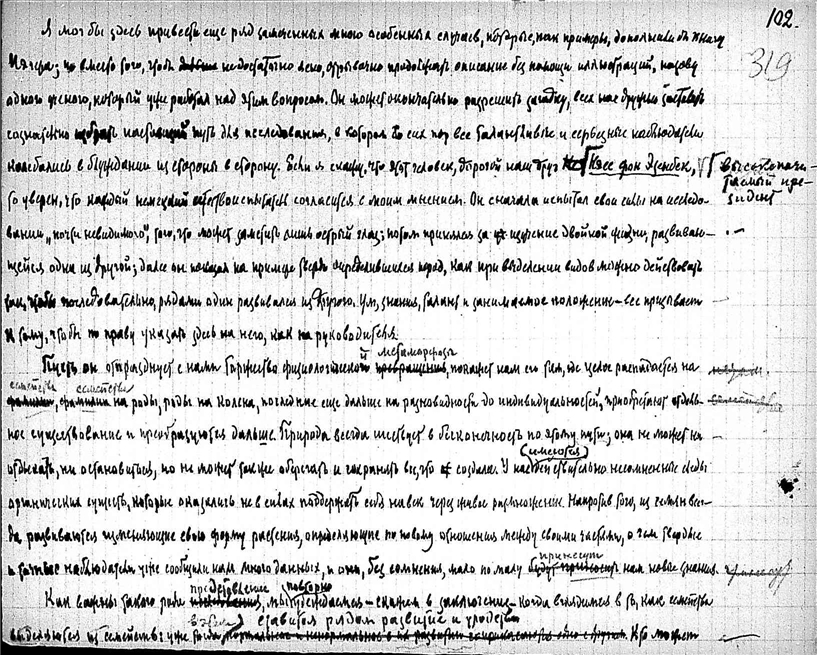 102.
319
Я мог бы здесь привести еще ряд замеченных мною особенных случаев, которые, как примеры, дополнили бы книгу
Иегера; но вместо того, чтобы недостаточно ясно, отрывочно продолжать описание без помощи иллюстраций, назову
одного ученого, который уже работал над этим вопросом. Он может окончательно разрешить загадку, всех нас друзей заставить
сознательно путь для исследования, в котором до сих пор все талантливые и серьезные наблюдатели
колебались в блуждании из стороны в сторону. Если я скажу, что этот человек, дорогой наш друг Неес фон Эзенбек, высокопочи-
таемый пре-
зидент
то уверен, что каждый немецкий естествоиспытатель согласится с моим мнением. Он сначала испытал свои силы на исследо-
вании „почти невидимого“, того, что может заметить лишь острый глаз; потом принялся за изучение двойной жизни, развиваю-
щейся одна из другой; далее он показал на примере твердо определившихся пород, как при выделении видов можно действовать
последовательно, рядами один развивался из другого. Ум, знания, талант и занимаемое положение – все призывает
к тому, чтобы по праву указать здесь на него, как на руководителя.
метаморфозы
Пусть он отпразднует с нами торжество физиологической превращения, покажет нам его там, где целое распадается на
семейства семейства
фамилии, фамилии на роды, роды на колена, последние еще дальше на разновидности до индивидуальностей, приобретают отдель-
ное существование и преобразуются дальше. Природа всегда шествует в бесконечность по этому пути; она не может ни
отдыхать, ни остановиться, но не может также сберегать и сохранять все, что создала. У нас действительно имеются несомненные следы
органических существ, которые оказались не в силах поддержать себя навек через живое размножение. Напротив того, из семян все-
да развиваются изменяющие свою форму растения, определяющие по новому отношения между своими частями, о чем твердые
и точные наблюдатели уже сообщили нам много данных, и они, без сомнения, мало по малу принесут нам новые знания.
Как важны такого рода представление, мы повторно убеждаемся – скажем в заключение – когда вглядимся в то, как семейства
ставится рядом развитие и уродство
выделяются из семейств: уже Кто может